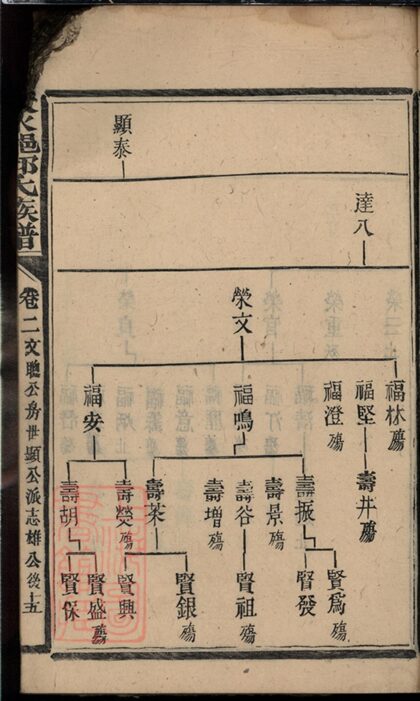 達八
顯泰
榮文
福林殤
福堅
福澄殤
福鳴
福安
壽井殤
壽振
壽景殤
壽谷
壽增殤
壽茱
壽熒殤
壽胡
賢為殤
賢發
賢祖殤
賢銀殤
賢興
賢盛殤
賢保
邑邱氏族譜
卷二文聰公房世顯公派志雄公後
十五